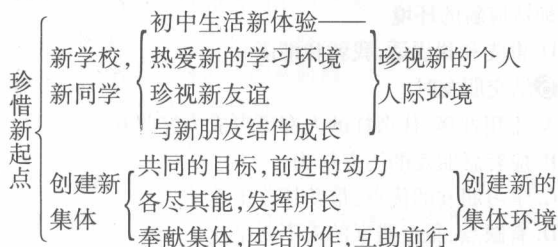 珍惜新起点
新学校，
新同学
初中生活新体验——
热爱新的学习环境
珍视新友谊
与新朋友结伴成长
珍视新的个人
人际环境
创建新
集体
共同的目标，前进的动力
各尽其能，发挥所长
奉献集体，团结协作，互助前行
创建新的
集体环境